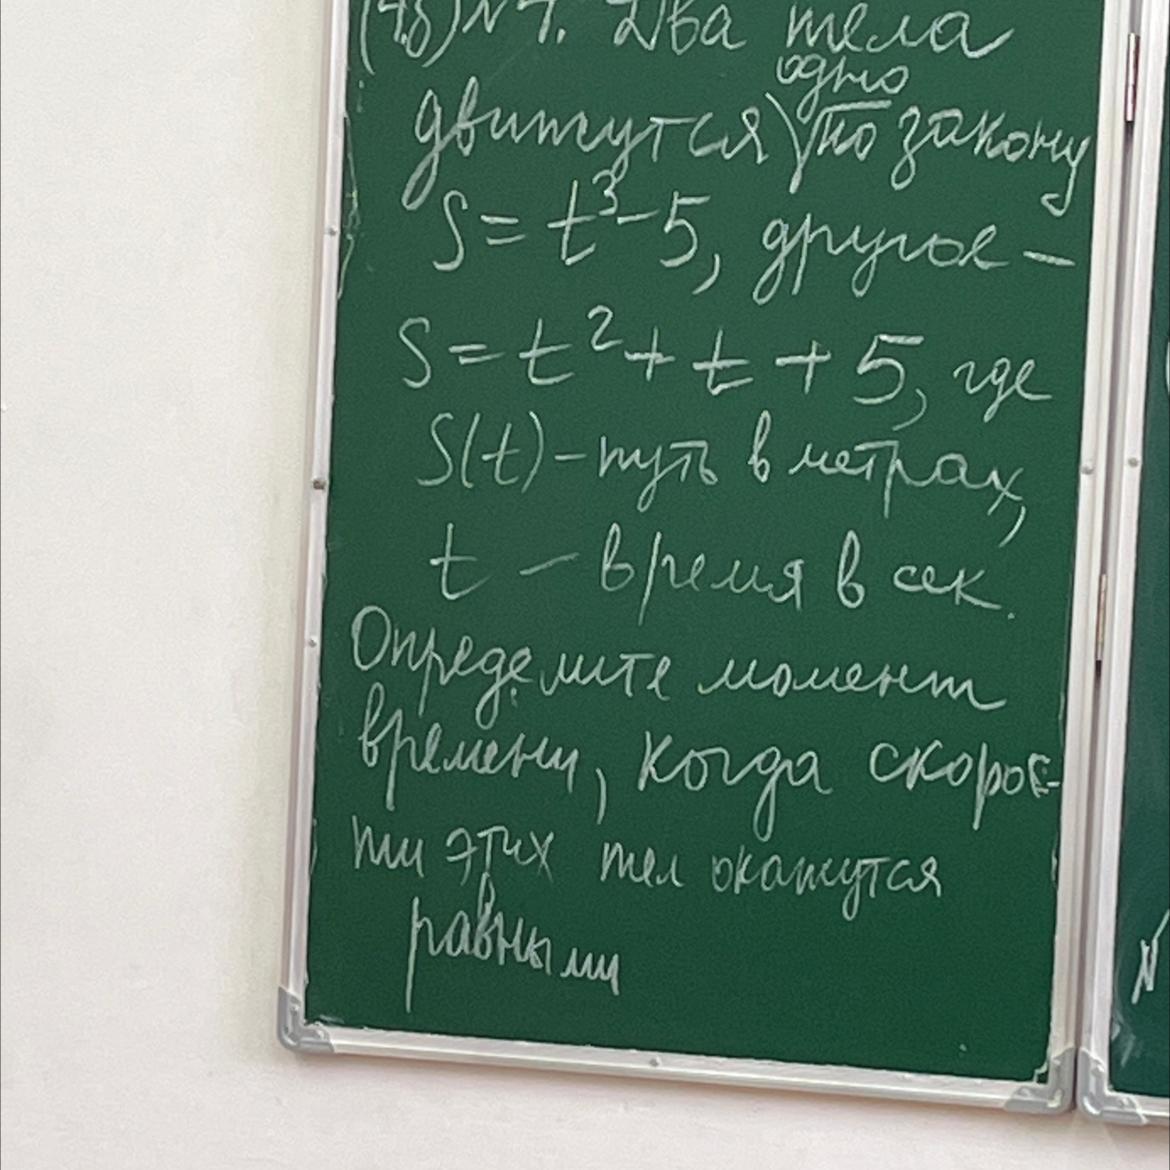 (4б) №4. Два тела
одно
движутся по закону
S = t³ - 5, другое -
S = t² + t + 5, где
S(t) - путь в метрах,
t - время в сек.
Определите момент
времени, когда скорос-
ти этих тел окажутся
равными
N